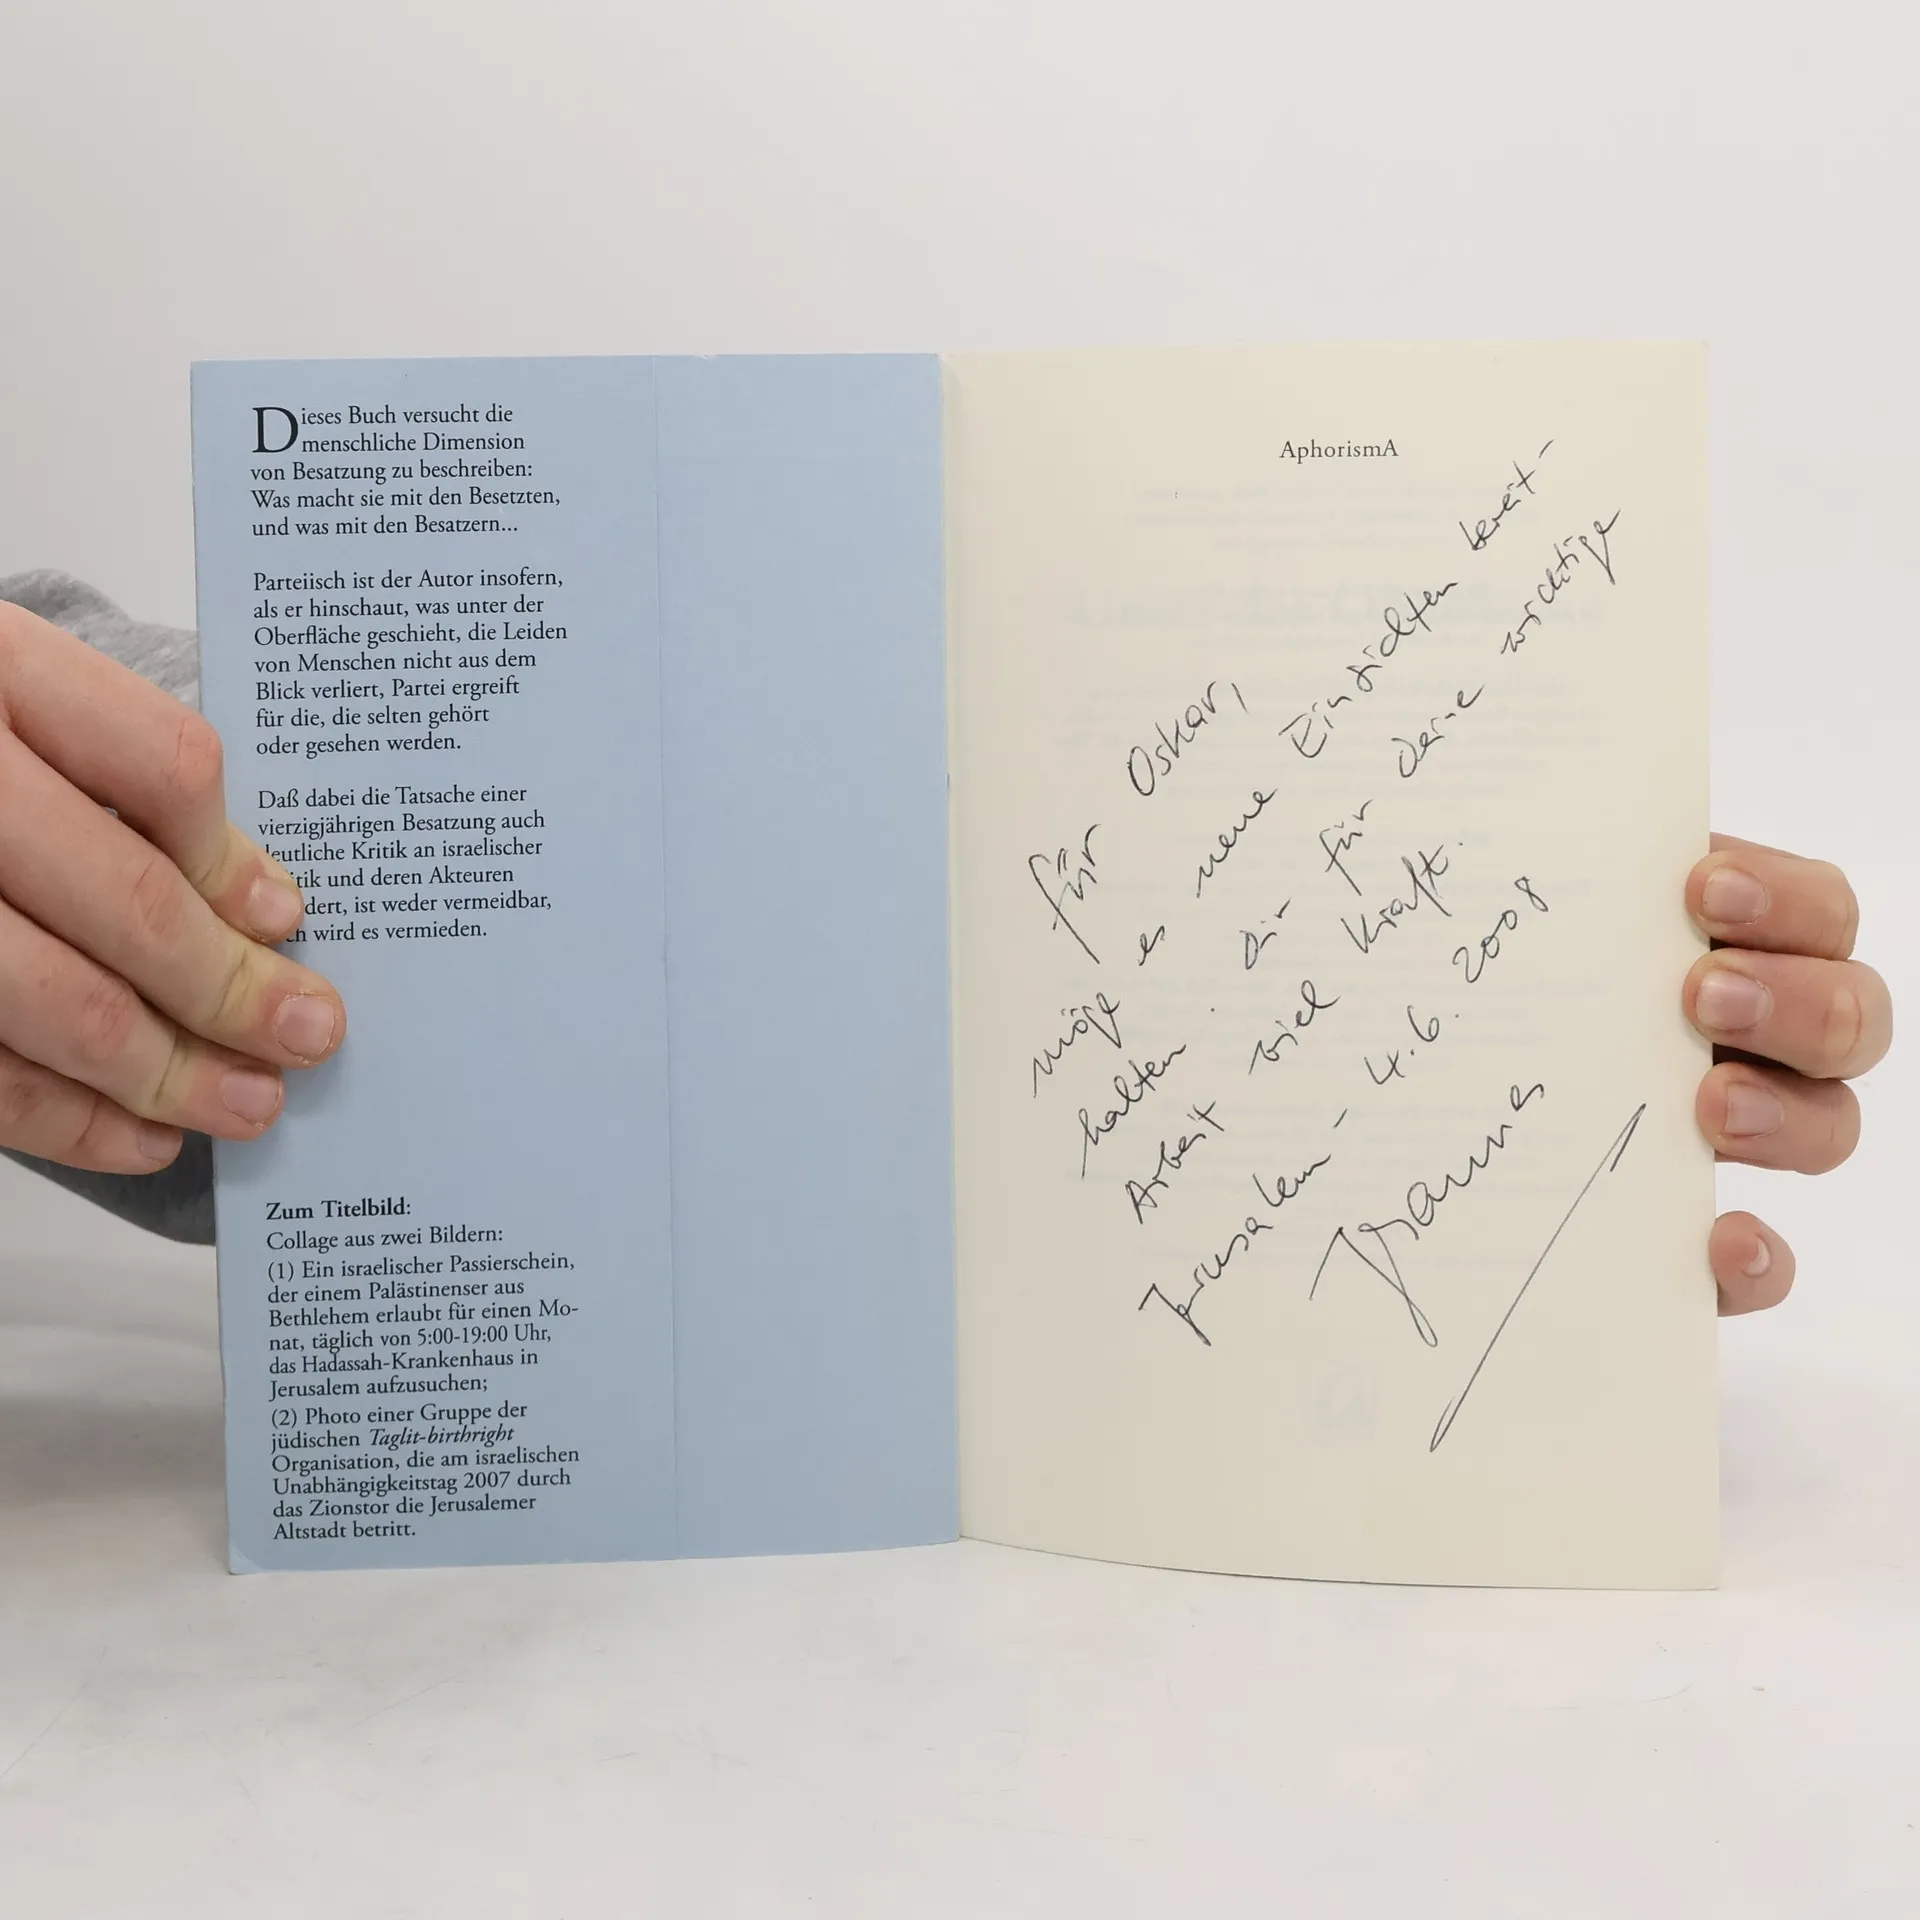 Dieses Buch versucht die
menschliche Dimension
von Besatzung zu beschreiben:
Was macht sie mit den Besetzten,
und was mit den Besatzern...
Parteiisch ist der Autor insofern,
als er hinschaut, was unter der
Oberfläche geschieht, die Leiden
von Menschen nicht aus dem
Blick verliert, Partei ergreift
für die, die selten gehört
oder gesehen werden.
Daß dabei die Tatsache einer
vierzigjährigen Besatzung auch
deutliche Kritik an israelischer
tik und deren Akteuren
dert, ist weder vermeidbar,
ch wird es vermieden.
Zum Titelbild:
Collage aus zwei Bildern:
(1) Ein israelischer Passierschein,
der einem Palästinenser aus
Bethlehem erlaubt für einen Mo-
nat, täglich von 5:00-19:00 Uhr,
das Hadassah-Krankenhaus in
Jerusalem aufzusuchen;
(2) Photo einer Gruppe der
jüdischen Taglit-birthright
Organisation, die am israelischen
Unabhängigkeitstag 2007 durch
das Zionstor die Jerusalemer
Altstadt betritt.
AphorismA
für Oskar,
möge es neue Einsichten bereit-
halten. Dir für deine wichtige
Arbeit viel Kraft.
Jerusalem - 4.6.2008